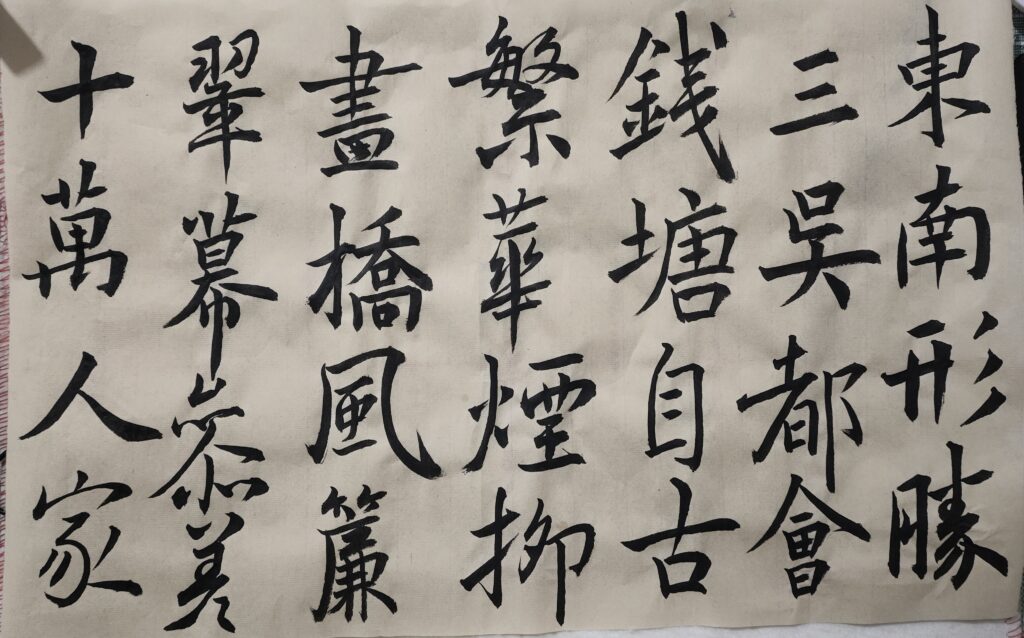 東南形勝
三吳都會
錢塘自古
繁華煙柳
畫橋風簾
翠幕參差
十萬人家